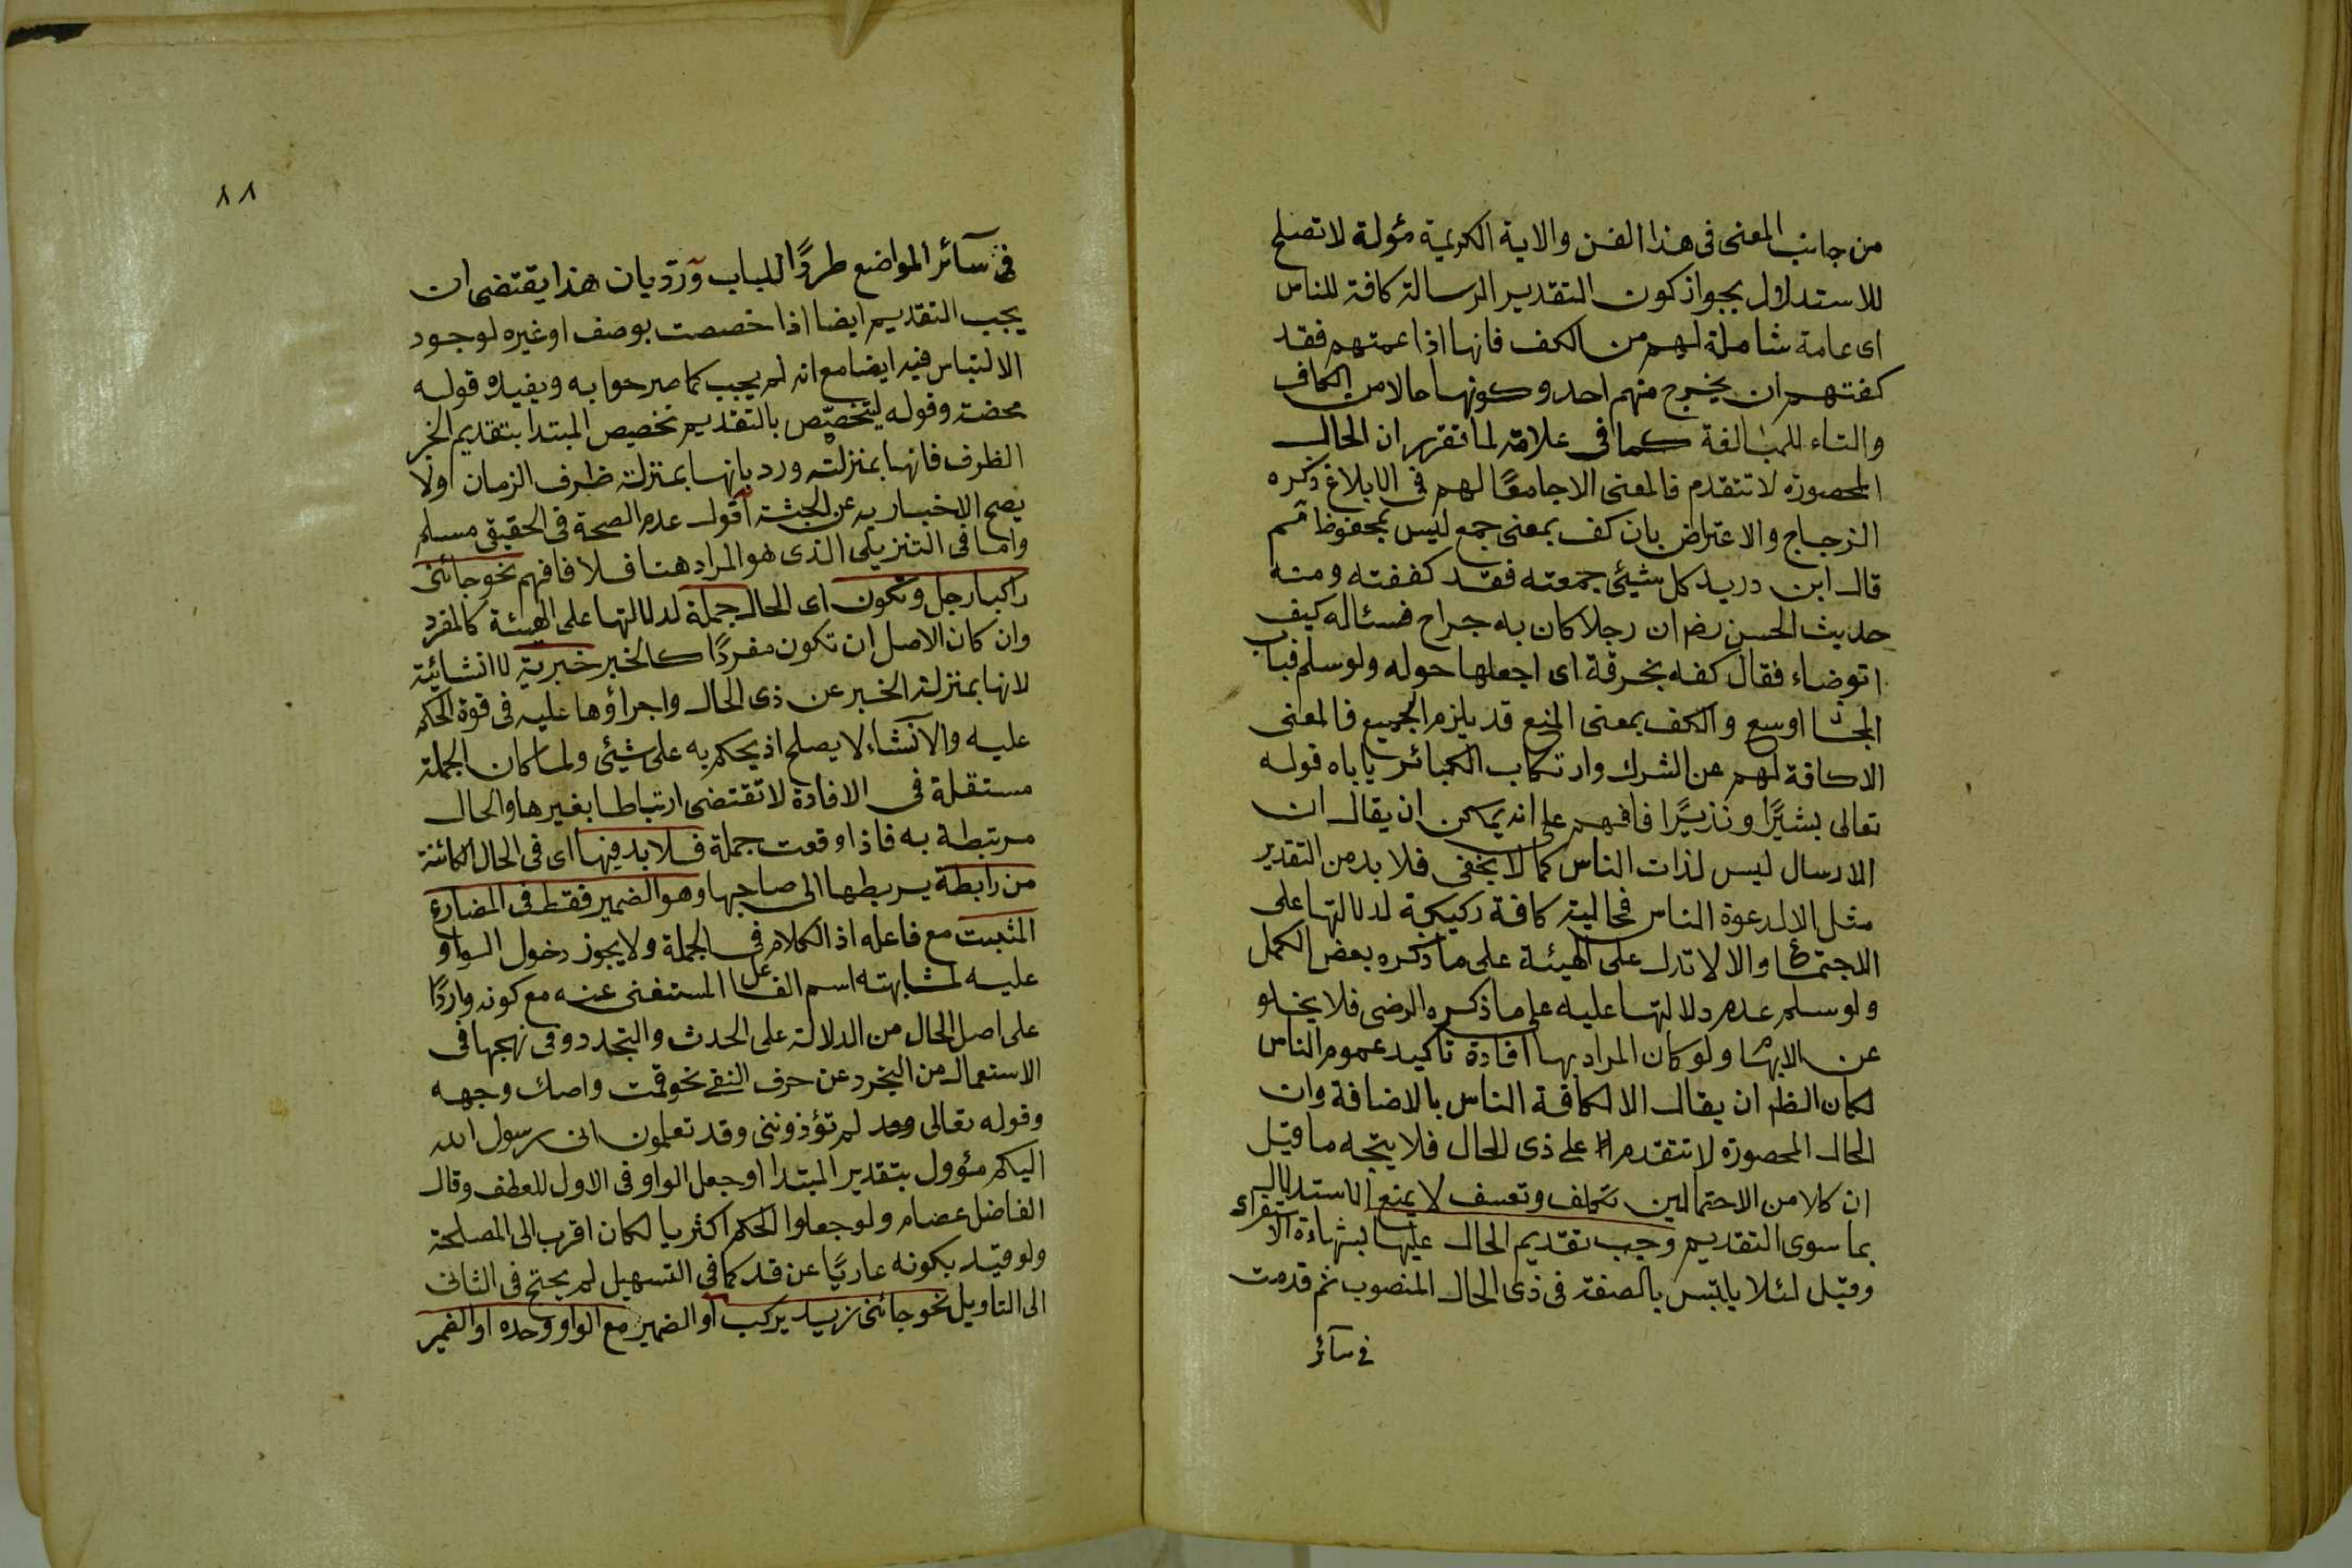 من جانب المعنى فى هذا الفن والاية الكريمة مؤولة لا تصلح
للاستدلال بجواز كون التقدير الرسالة كافة للناس
اى عامة شاملة لهم من الكف فانها اذا عمتهم فقد
كفتهم ان يخرج منهم احد وكونها حالا من الكاف
والتاء للمبالغة كما فى علامة لما تقرر ان الحال
المحصورة لا تتقدم فالمعنى الا جامعًا لهم فى الابلاغ ذكره
الزجاج والاعتراض بان كف بمعنى جمع ليس بمحفوظ
قال ابن دريد كل شيئ جمعته فقد كففته ومنه
حديث الحسن رضى ان رجلا كان به جراح فسئاله كيف
اتوضاء فقال كفه بخرقة اى اجعلها حوله ولو سلم فباب
المجاز اوسع والكف بمعنى المنع قد يلزم الجميع فالمعنى
الا كافة لهم عن الشرك وارتكاب الكبائر ياباه قوله
تعالى بشيرًا ونذيرًا فافهم على انه يمكن ان يقال ان
الارسال ليس لذات الناس كما لا يخفى فلا بد من التقدير
مثل الا لدعوة الناس فحالية كافة ركيكة لدلالتها على
الاجتماع والا لا تدل على الهيئة على ما ذكره بعض الكمل
ولو سلم عدم دلالتها عليه على ما ذكره الرضى فلا يخلو
عن الابهام ولو كان المراد بها افادة تاكيد عموم الناس
لكان الظم ان يقال الا لكافة الناس بالاضافة وان
الحال المحصورة لا تتقدم على ذى الحال فلا يتجه ما قيل
ان كلا من الاحتمالين تكلف وتعسف لا يمنع الاستدلال
بما سوى التقديم وجب تقديم الحال عليها بشهادة الاستقراء
وقيل لئلا يلتبس بالصفة فى ذى الحال المنصوب ثم قدمت
فى سآئر
٨٨
فى سآئر المواضع طردًا للباب ورد بان هذا يقتضى ان
يجب التقديم ايضا اذا خصصت بوصف او غيره لوجود
الالتباس فيه ايضا مع انه لم يجب كما صرحوا به ويفيده قوله
محضة وقوله ليتخصّص بالتقديم تخصيص المبتدا بتقديم الخبر
الظرف فانها بمنزلته ورد بانها بمنزلة ظرف الزمان ولا
يصح الاخبار به عن الجثة اقول عدم الصحة فى الحقيقى مسلم
واما فى التنزيلى الذى هو المراد هنا فلا فافهم نحو جائنى
راكبا رجل وتكون اى الحال جملة لدلالتها على الهيئة كالمفرد
وان كان الاصل ان تكون مفردًا كالخبر خبرية لا انشائية
لانها بمنزلة الخبر عن ذى الحال واجراؤها عليه فى قوة الحكم
عليه والانشاء لا يصلح اذ يحكم به على شيئ ولما كان الجملة
مستقلة فى الافادة لا تقتضى ارتباطا بغيرها والحال
مرتبطة به فاذا وقعت جملة فلا بد فيها اى فى الحال الكائنة
من رابطة يربطها الى صاحبها وهو الضمير فقط فى المضارع
المثبت مع فاعله اذ الكلام فى الجملة ولا يجوز دخول الواو
عليه لمشابهته اسم الفاعل المستغنى عنه مع كونه واردًا
على اصل الحال من الدلالة على الحدث والتجدد وفى نهجها فى
الاستعمال من التجرد عن حرف النفى نحو قمت واصك وجهه
وقوله تعالى لم تؤذوننى وقد تعلمون انى رسول الله
اليكم مئوول بتقدير المبتدا او جعل الواو فى الاول للعطف وقال
الفاضل عصام ولو جعلوا الحكم اكثريا لكان اقرب الى المصلحة
ولو قيد بكونه عاريًا عن قد كما فى التسهيل لم يحتج فى الثانى
الى التاويل نحو جائنى زيد يركب او الضمير مع الواو وحده او الضمير